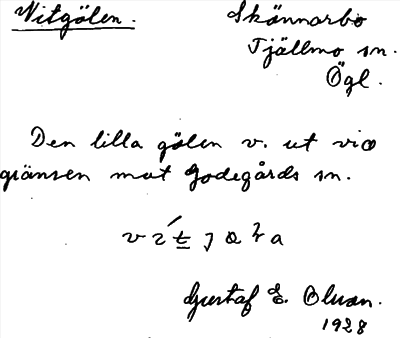 Vitgölen. Skönnarbo
Tjällmo sn.
Ögl.
Den lilla gölen v. ut vid
gränsen mot Godegårds sn.
Gustaf E. Olson.
1928